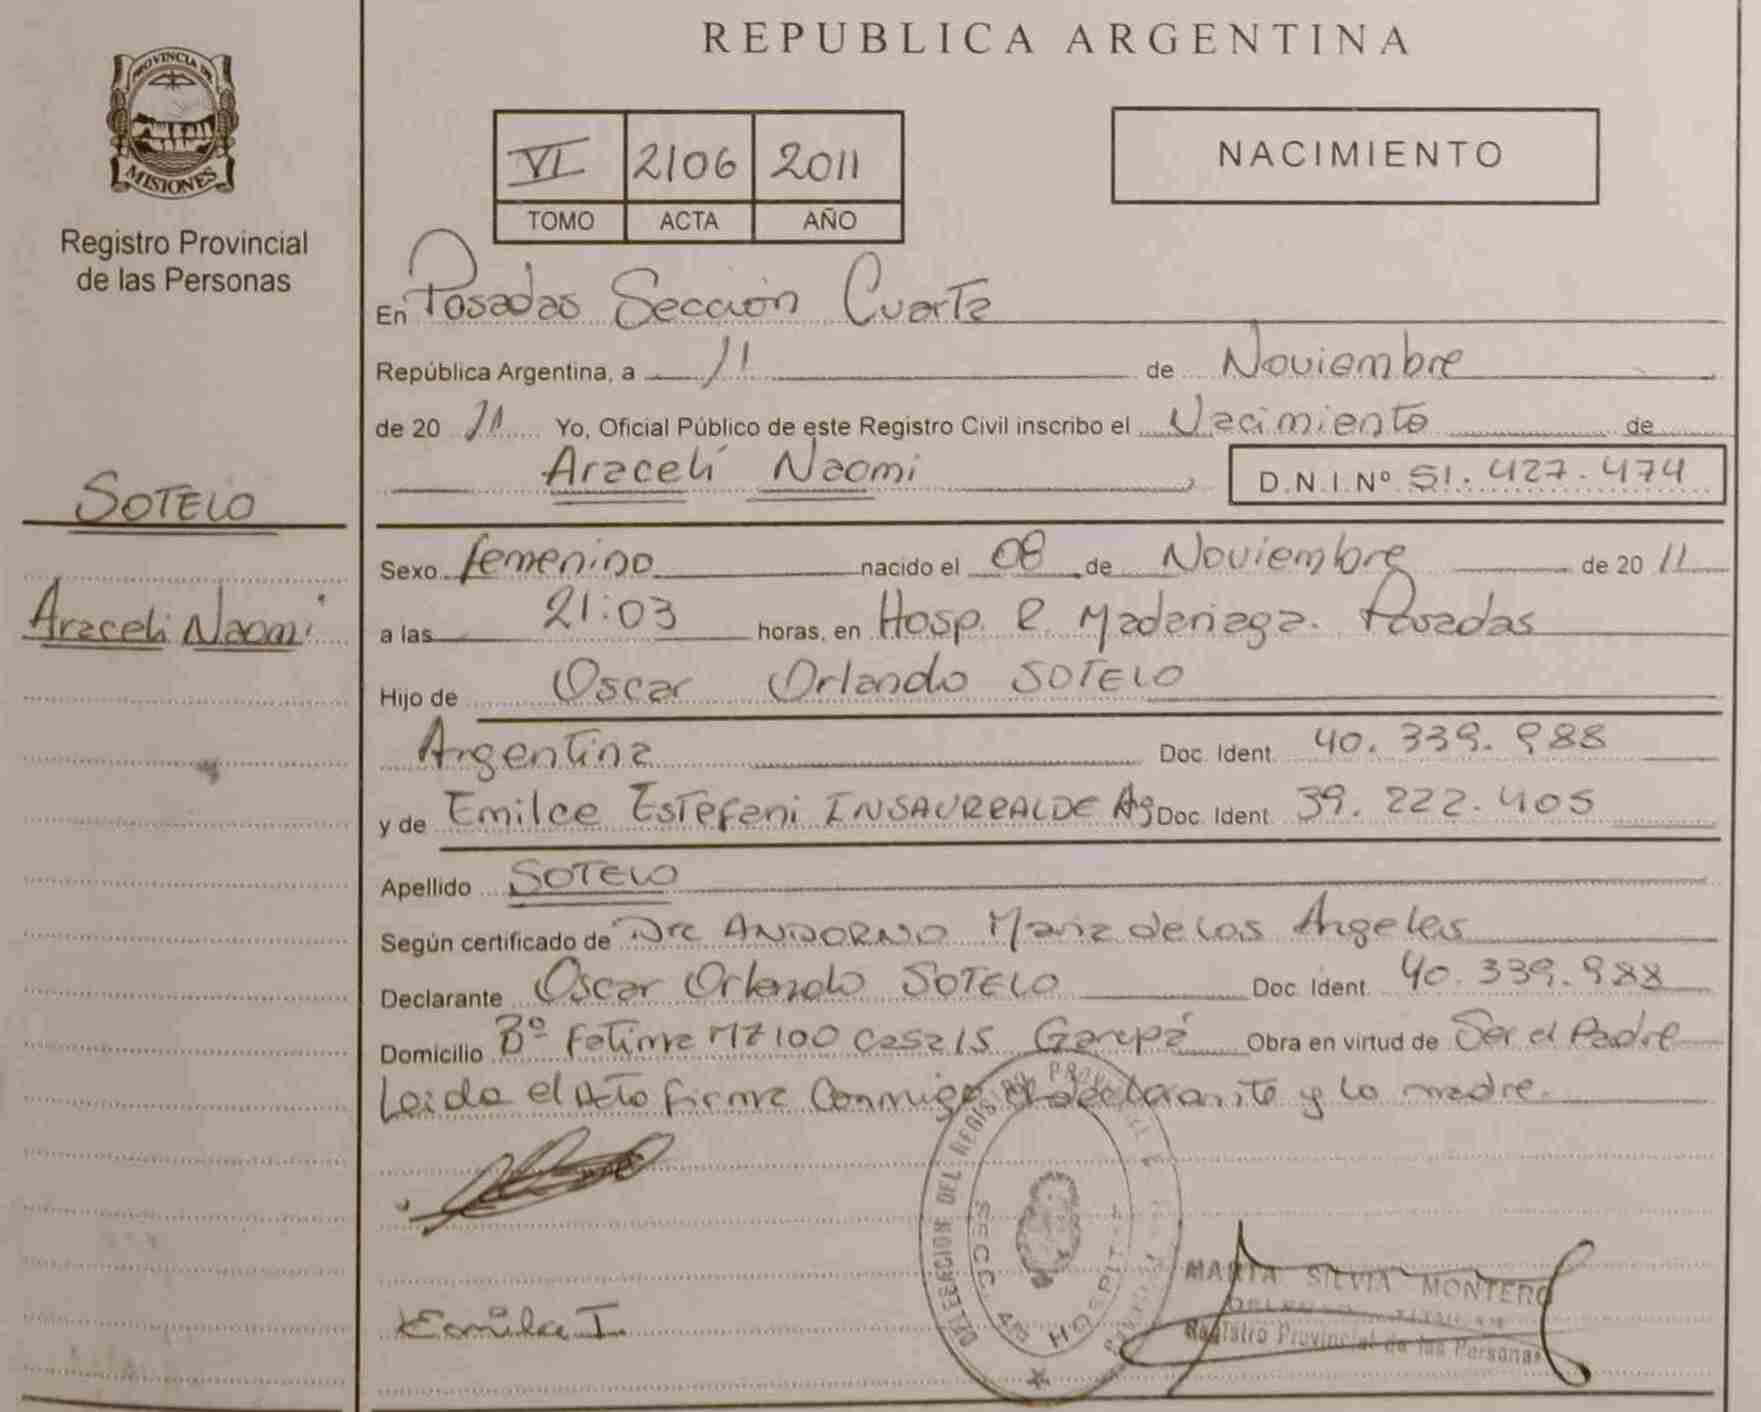 PROVINCIA DE
MISIONES
Registro Provincial
de las Personas
SOTELO
Araceli Naomi
REPUBLICA ARGENTINA
VI 2106 2011
TOMO ACTA AÑO
NACIMIENTO
En Posadas Sección Cuarta
República Argentina, a 11 de Noviembre
de 20 11 Yo, Oficial Público de este Registro Civil inscribo el Nacimiento de
Aracelí Naomi D.N.I. Nº 51.427.474
Sexo femenino nacido el 08 de Noviembre de 20 11
a las 21:03 horas, en Hosp. R. Madariaga. Posadas
Hijo de Oscar Orlando SOTELO
Argentina Doc. Ident. 40.339.988
y de Emilce Estefani INSAURRALDE Ag Doc. Ident. 39.222.405
Apellido SOTELO
Según certificado de Dra ANDORNO Maria de los Angeles
Declarante Oscar Orlando SOTELO Doc. Ident. 40.339.988
Domicilio Bº Fatima MZ 100 casa 15 Garupá Obra en virtud de Ser el Padre
Leida el Acta firma Conmigo el declarante y la madre.
DELEGACION DEL REGISTRO PROVINCIAL
SECC. 4a HOSPITAL
Emilce I.
MARIA SILVIA MONTERO
Registro Provincial de las Personas